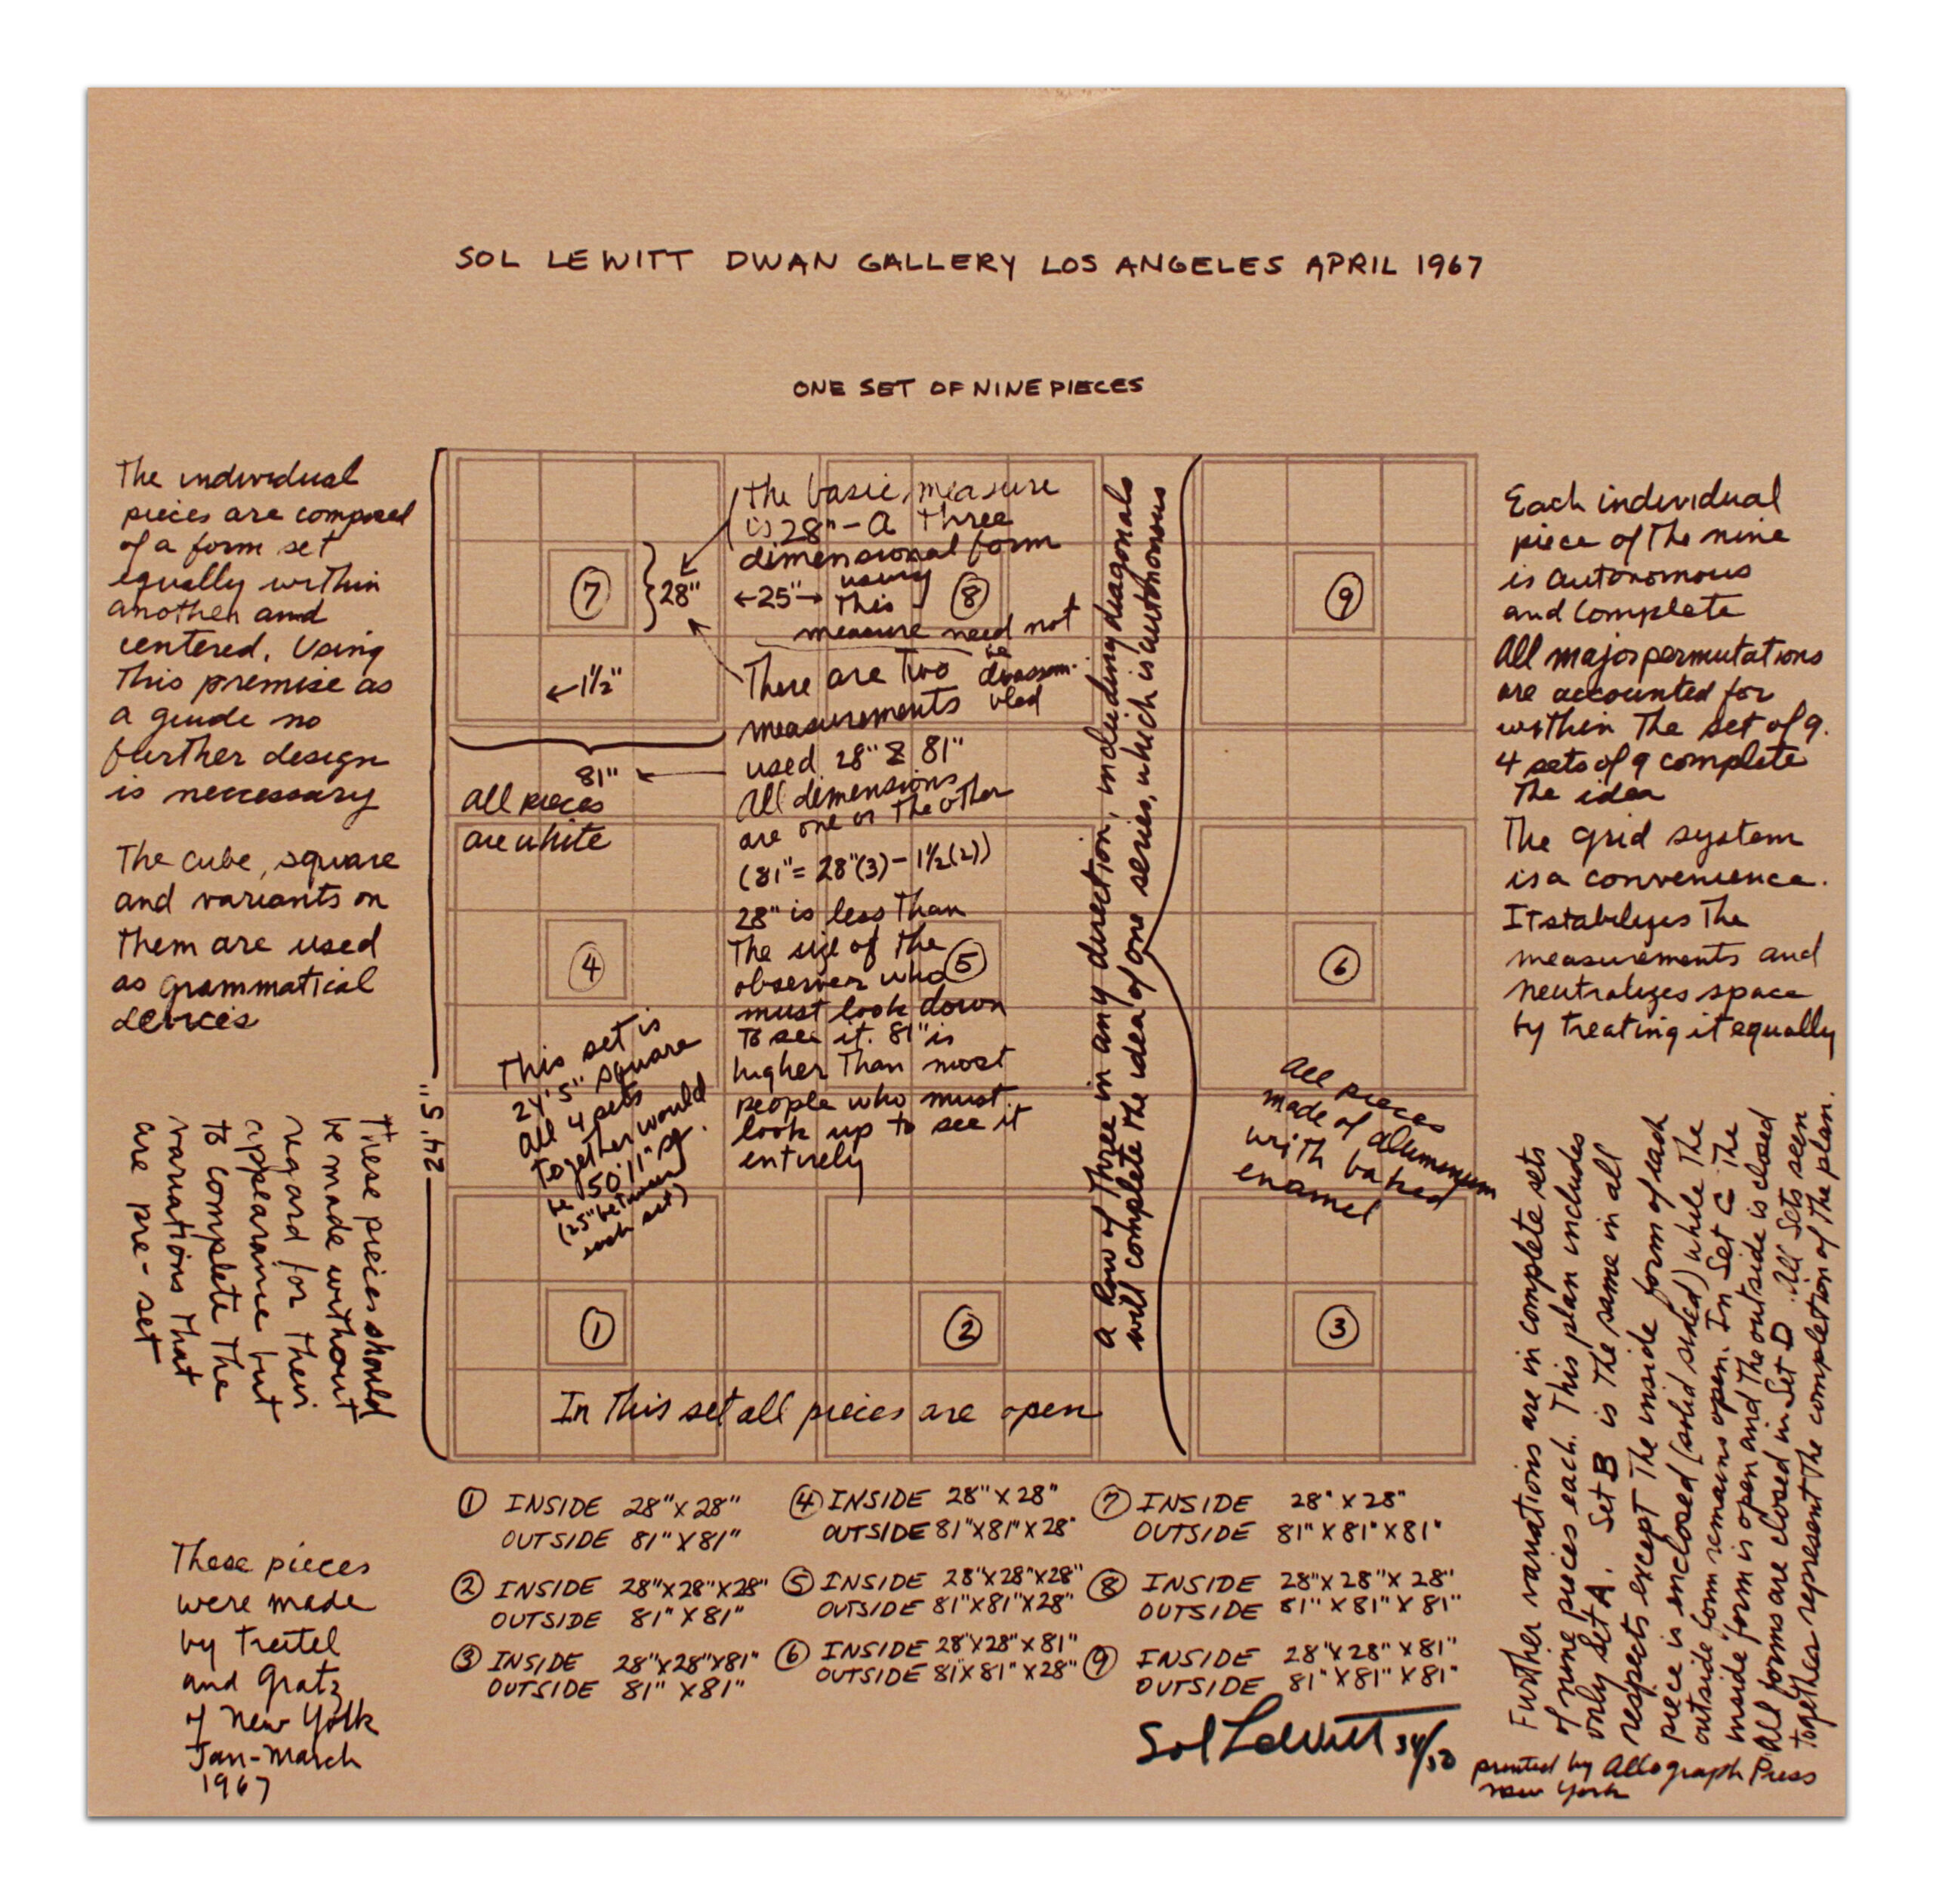 SOL LEWITT DWAN GALLERY LOS ANGELES APRIL 1967
ONE SET OF NINE PIECES
The individual
pieces are composed
of a form set
equally within
another and
centered. Using
This premise as
a guide no
further design
is neccessary
The cube, square
and variants on
them are used
as grammatical
devices
These pieces should
be made without
regard for their
appearance but
to complete the
variations that
are pre-set
These pieces
were made
by Treitel
and Gratz
of New York
Jan-March
1967
24'.5"
7
28"
←1½"
81"
All pieces
are white
the basic measure
is 28" - a three
dimensional form
←25"→ using
this
8
measure need not
be
disassem-
bled
There are two
measurements
used 28" & 81"
All dimensions
are one or the other
(81" = 28"(3) - 1½(2))
28" is less than
the size of the
observer who
must look down
To see it. 81" is
higher than most
people who must
look up to see it
entirely
4
5
This set is
24'5" square
all 4 sets
together would
be 50'11" sq.
(25" between
each set)
a row of three in any direction, including diagonals
will complete the idea of one series, which is autonomous
9
6
All pieces
made of aluminum
with baked
enamel
1
2
3
In this set all pieces are open
Each individual
piece of the nine
is autonomous
and complete
All major permutations
are accounted for
within the set of 9.
4 sets of 9 complete
the idea
The grid system
is a convenience.
It stabilizes the
measurements and
neutralizes space
by treating it equally
Further variations are in complete sets
of nine pieces each. This plan includes
only set A. Set B is the same in all
respects except the inside form of each
piece is enclosed (solid sided) while the
outside form remains open. In Set C the
inside form is open and the outside is closed
All forms are closed in Set D. All Sets seen
together represent the completion of the plan.
① INSIDE 28"X28"
OUTSIDE 81"X81"
② INSIDE 28"X28"X28"
OUTSIDE 81"X81"
③ INSIDE 28"X28"X81"
OUTSIDE 81" X81"
④ INSIDE 28"X28"
OUTSIDE 81"X81"X28"
⑤ INSIDE 28"X28"X28"
OUTSIDE 81"X81"X28"
⑥ INSIDE 28"X28"X81"
OUTSIDE 81X81"X28"
⑦ INSIDE 28"X28"
OUTSIDE 81"X81"X81"
⑧ INSIDE 28"X28"X28"
OUTSIDE 81"X81"X81"
⑨ INSIDE 28"X28"X81"
OUTSIDE 81"X81"X81"
Sol LeWitt 34/50
printed by Allograph Press
New York